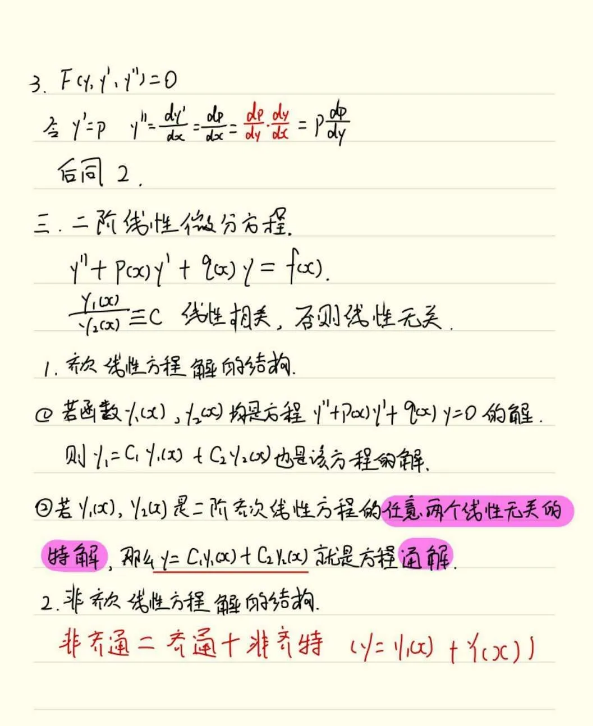 3. F(y, y', y'')=0
令 y'=p y''=dy'/dx=dp/dx=dp/dy·dy/dx=p dp/dy
后同 2.
三. 二阶线性微分方程.
y''+p(x)y'+q(x)y=f(x).
y₁(x)/y₂(x)≡C 线性相关, 否则线性无关.
1. 齐次线性方程解的结构.
① 若函数y₁(x), y₂(x)均是方程 y''+p(x)y'+q(x)y=0 的解.
则 y₁=C₁y₁(x)+C₂y₂(x)也是该方程的解.
②若 y₁(x), y₂(x)是二阶齐次线性方程的任意两个线性无关的
特解, 那么 y=C₁y₁(x)+C₂y₂(x) 就是方程通解.
2. 非齐次线性方程解的结构.
非齐通=齐通+非齐特 (y=y₁(x)+Y(x))